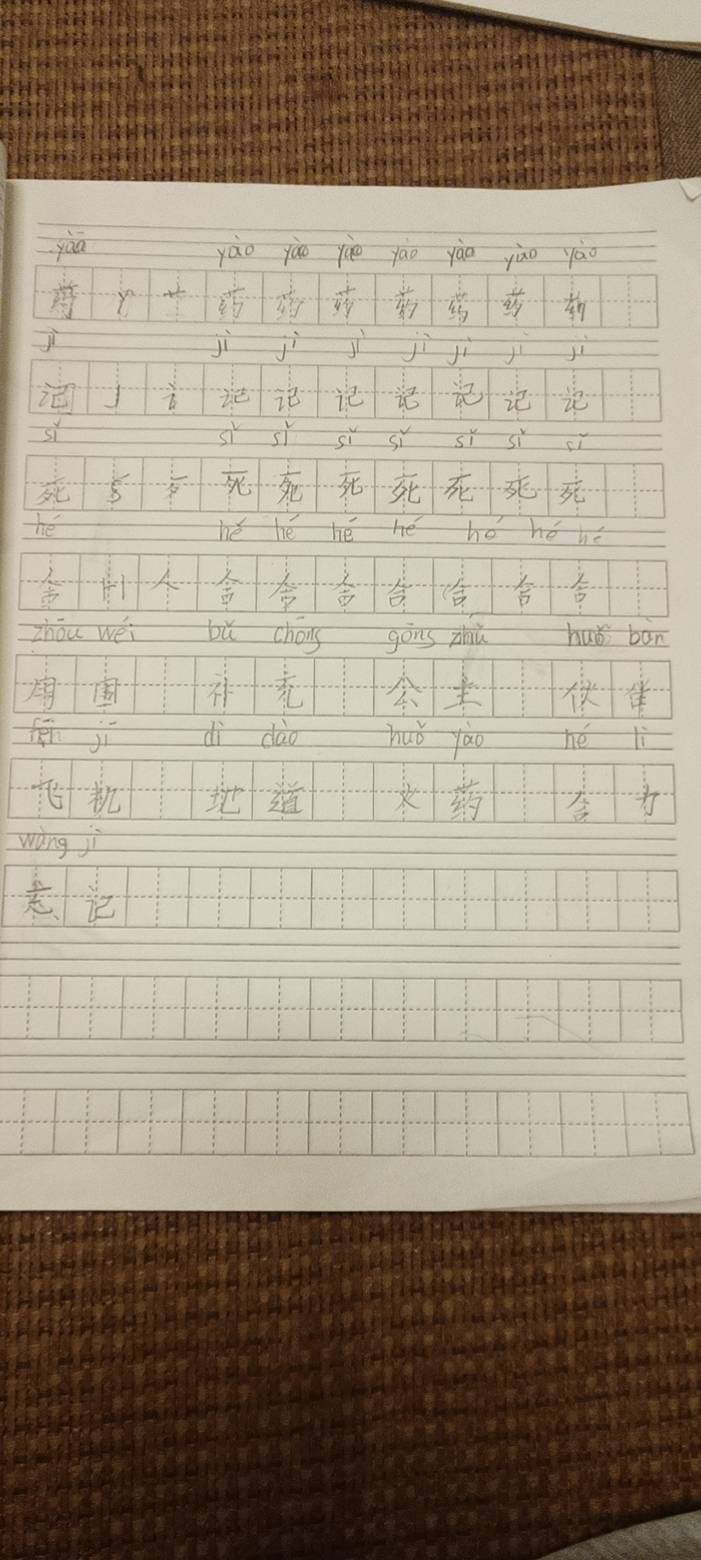 yào yào yào yào yào yào yào yào
药 丫 艹 药 药 药 药 药 药 药
jì jì jì jì jì jì jì jì
记 讠 记 记 记 记 记 记 记
sǐ sǐ sǐ sǐ sǐ sǐ sǐ sǐ
死 5 歹 死 死 死 死 死 死 死
hé hé hé hé hé hé hé hé
合 人 合 合 合 合 合 合 合
zhōu wéi bǔ chōng gōng zhǔ huǒ bàn
周 围 补 充 公 主 伙 伴
fēi jī dì dào huǒ yào hé lì
飞 机 地 道 火 药 合 力
wàng jì
忘 记